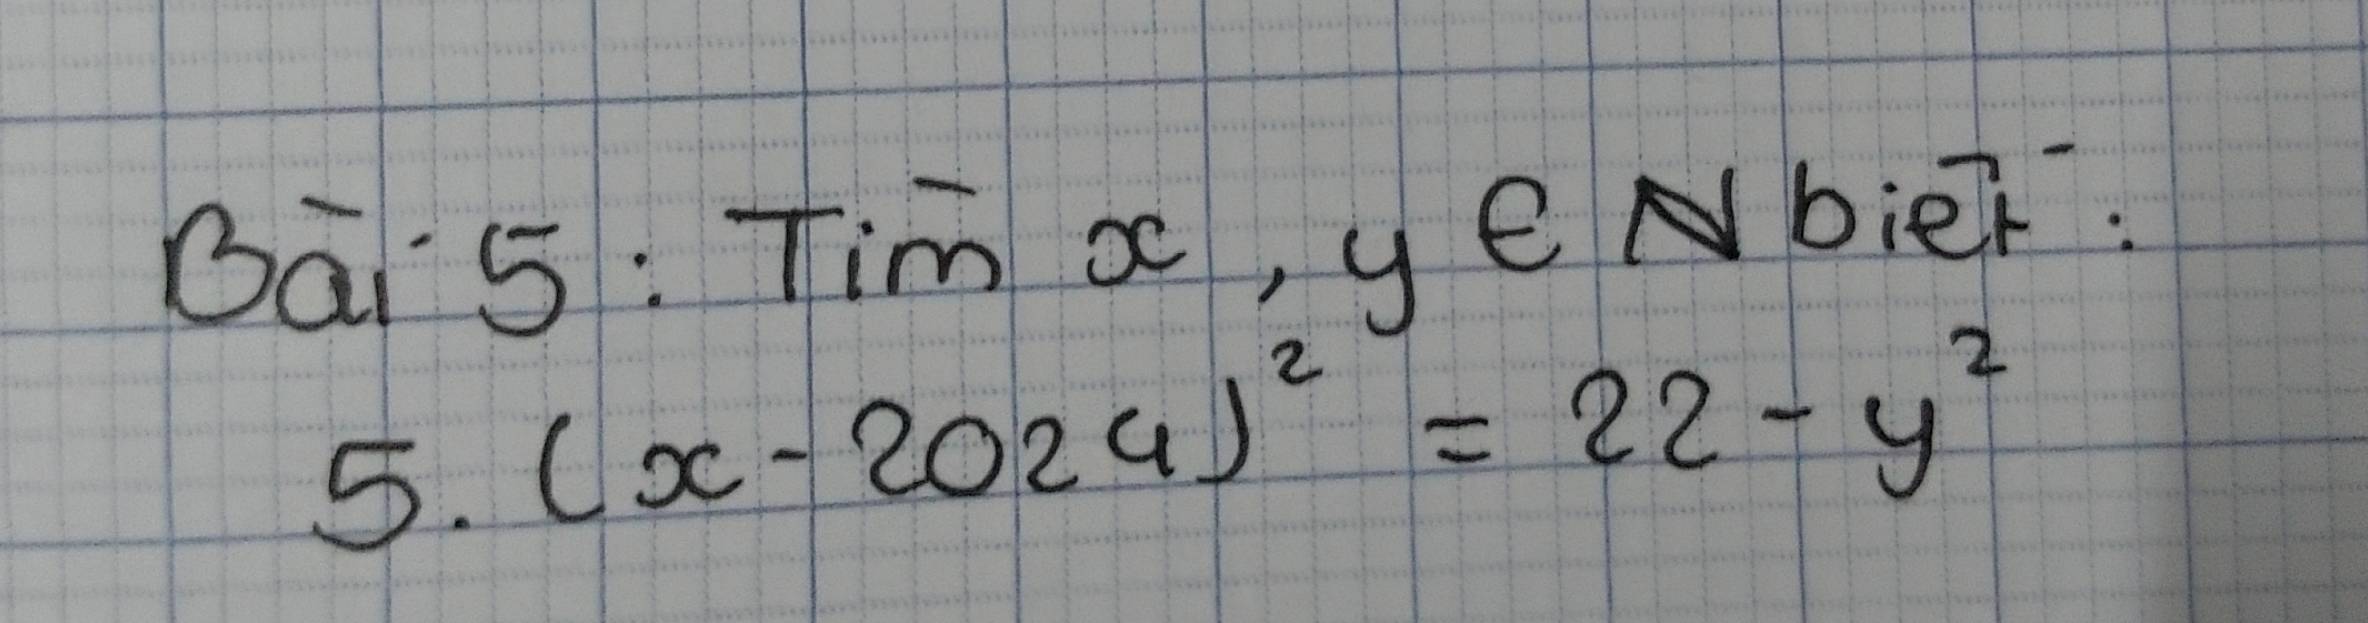 Bài 5: Tìm x, y ∈ N biết:
5. (x - 2024)² = 22 - y²